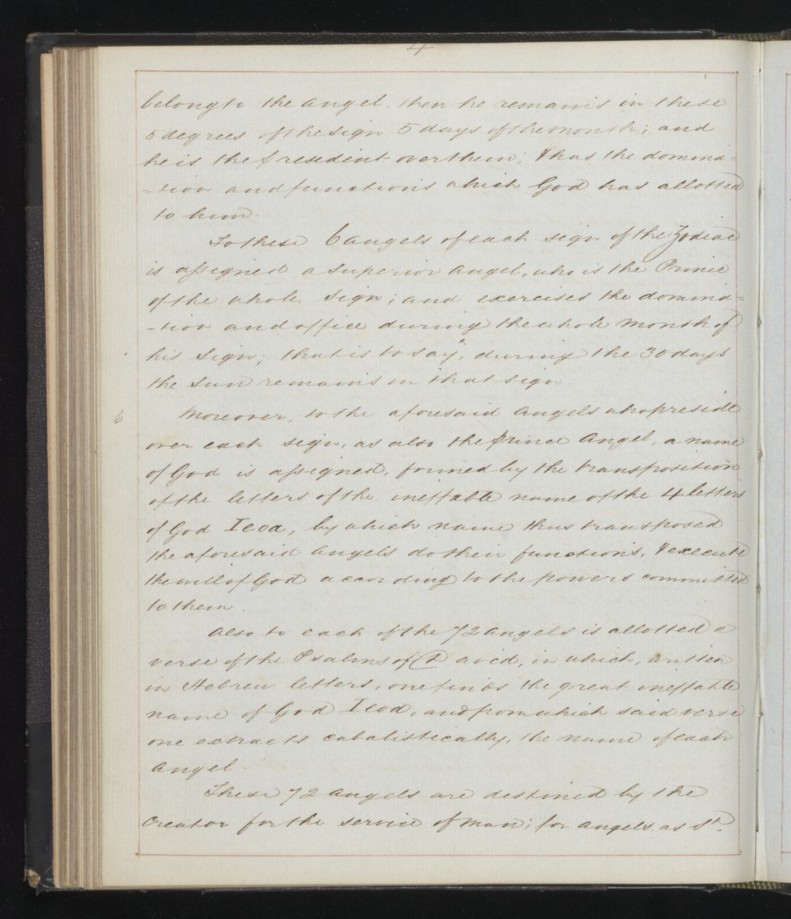 4
belong to the angel. then he remains in these
5 degrees of the sign 5 days of the month; and
he is the president over them; & has the domina-
-tion and functions which God has allotted
to him.
To these 6 angels of each sign of the Zodiac
is assigned a superior angel, who is the Prince
of the whole sign; and exercises the domina-
-tion and office during the whole month of
his sign; that is to say, during the 30 days
the sun remains in that sign.
6 Moreover, to the aforesaid angels who preside
over each sign, as also the prince angel, a name
of God is assigned, formed by the transposition
of the letters of the ineffable name of the 4 letters
of God Ieoa, by which name thus transposed
the aforesaid angels do their functions, & execute
the will of God according to the powers committed
to them.
Also to each of the 72 angels is allotted a
verse of the Psalms of David, in which, written
in Hebrew letters, one finds the great ineffable
name of God Ieoa, and from which said verse
one extracts cabalistically, the name of each
angel.
These 72 angels are destined by the
Creator for the service of man; for angels, as St.